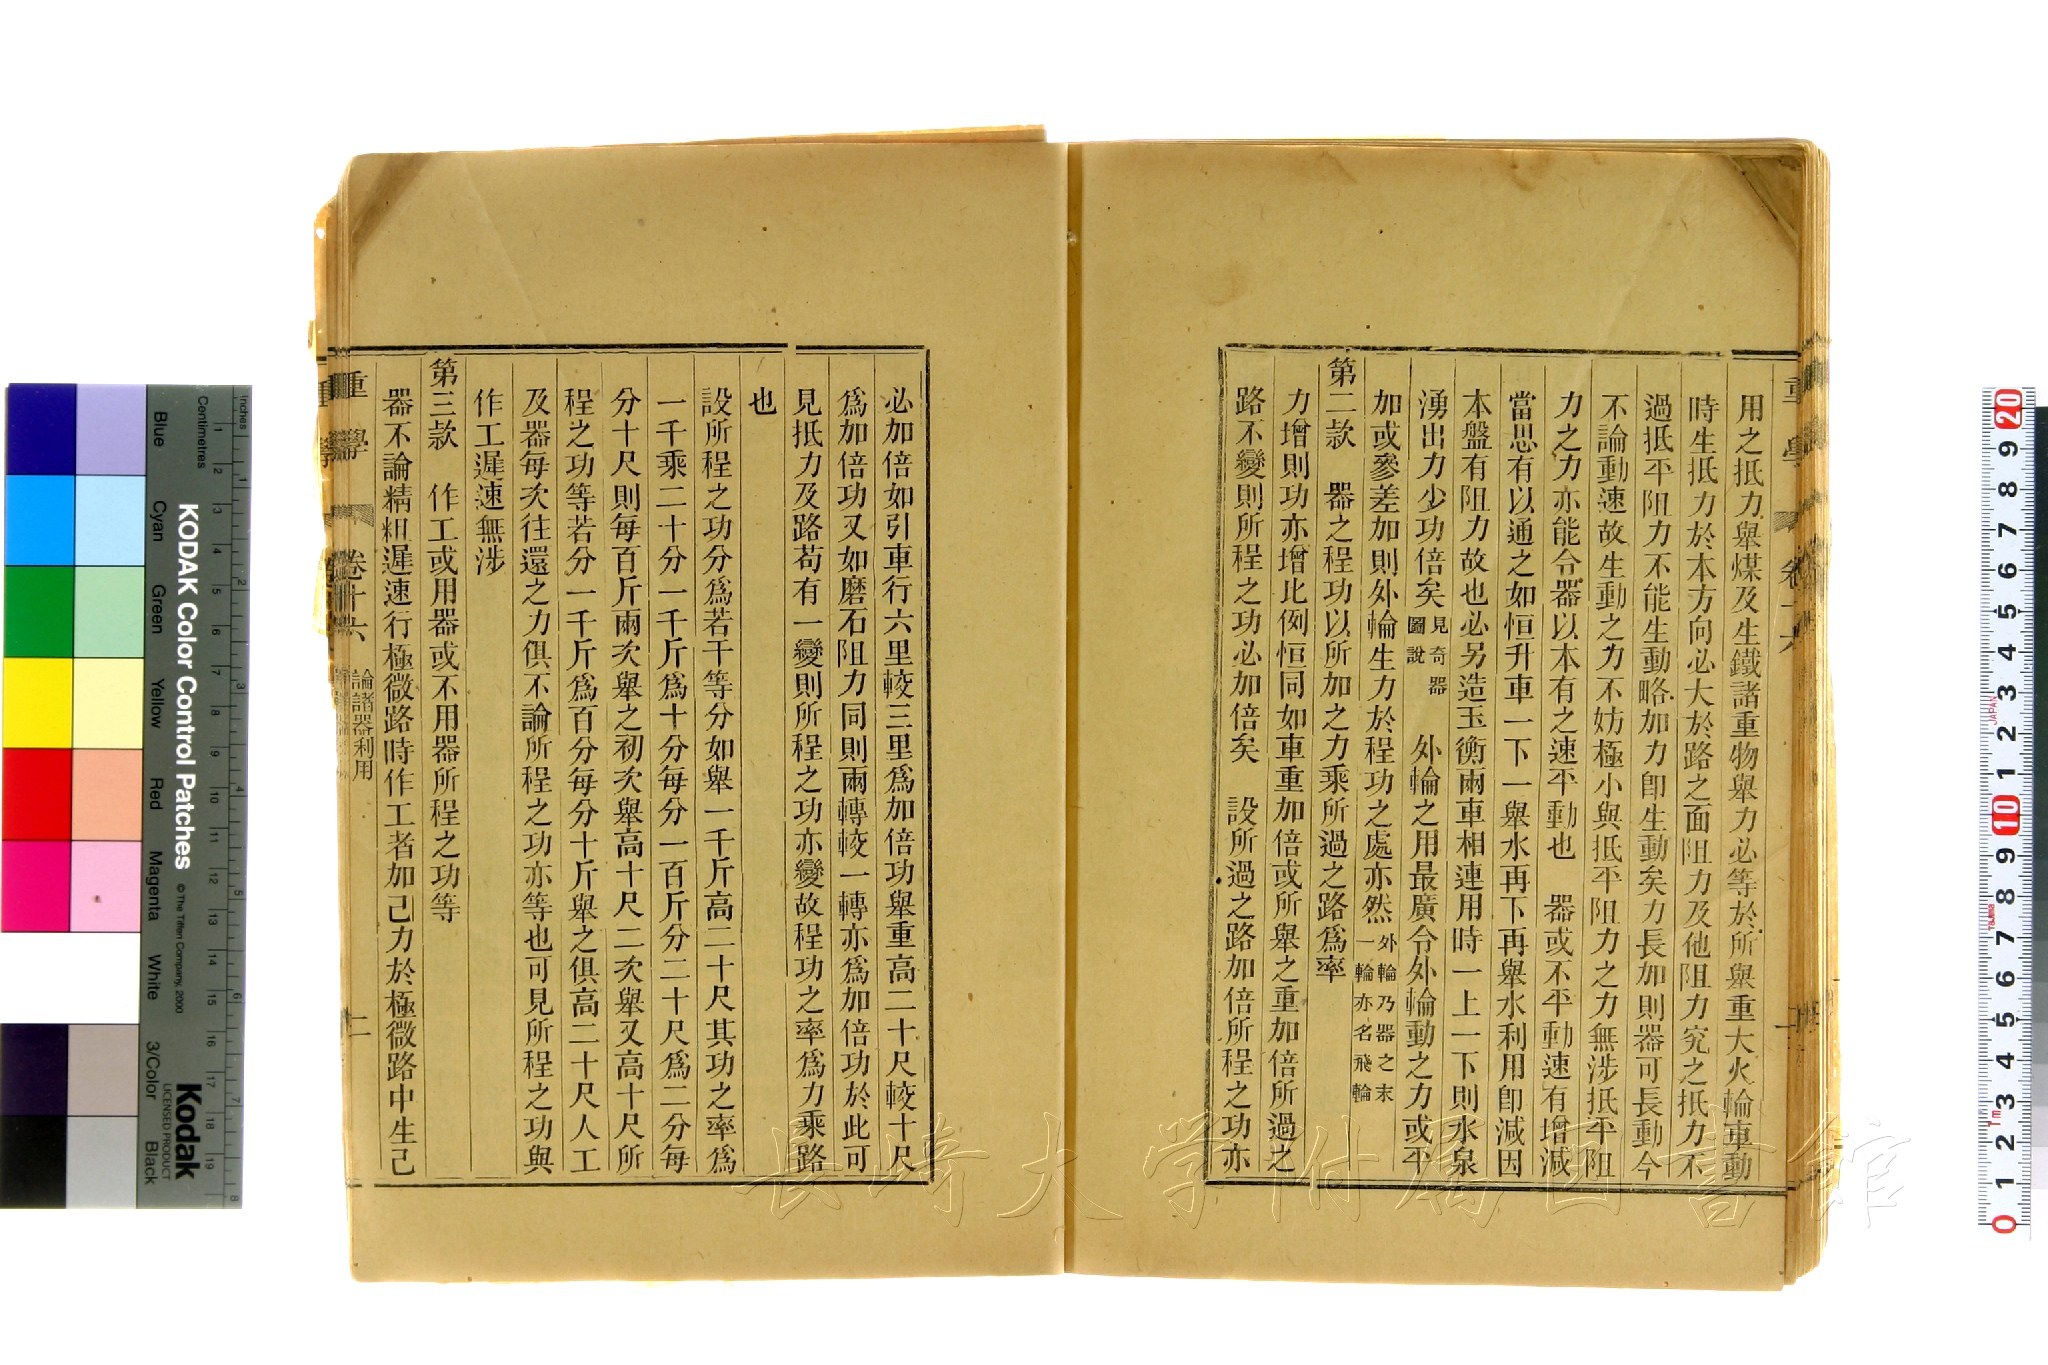 用之抵力舉煤及生鐵諸重物舉力必等於所舉重大火輪車動
時生抵力於本方向必大於路之面阻力及他阻力究之抵力不
過抵平阻力不能生動略加力卽生動矣力長加則器可長動今
不論動速故生動之力不妨極小與抵平阻力之力無涉抵平阻
力之力亦能令器以本有之速平動也 器或不平動速有增減
當思有以通之如恒升車一下一舉水再下再舉水利用卽減因
本盤有阻力故也必另造玉衡兩車相連用時一上一下則水泉
湧出力少功倍矣見奇器圖說 外輪之用最廣令外輪動之力或平
加或參差加則外輪生力於程功之處亦然外輪乃器之末一輪亦名飛輪
第二款 器之程功以所加之力乘所過之路爲率
力增則功亦增比例恒同如車重加倍或所舉之重加倍所過之
路不變則所程之功必加倍矣 設所過之路加倍所程之功亦
必加倍如引車行六里較三里爲加倍功舉重高二十尺較十尺
爲加倍功又如磨石阻力同則兩轉較一轉亦爲加倍功於此可
見抵力及路苟有一變則所程之功亦變故程功之率爲力乘路
也
設所程之功分爲若干等分如舉一千斤高二十尺其功之率爲
一千乘二十分一千斤爲十分每分一百斤分二十尺爲二分每
分十尺則每百斤兩次舉之初次舉高十尺二次舉又高十尺所
程之功等若分一千斤爲百分每分十斤舉之俱高二十尺人工
及器每次往還之力俱不論所程之功亦等也可見所程之功與
作工遲速無涉
第三款 作工或用器或不用器所程之功等
器不論精粗遲速行極微路時作工者加己力於極微路中生己
重學 卷十六 論諸器利用 二
KODAK Color Control Patches
© The Tiffen Company, 2000
Kodak
LICENSED PRODUCT
Inches
Centimetres
Blue Cyan Green Yellow Red Magenta White 3/Color Black
長崎大学附属図書館